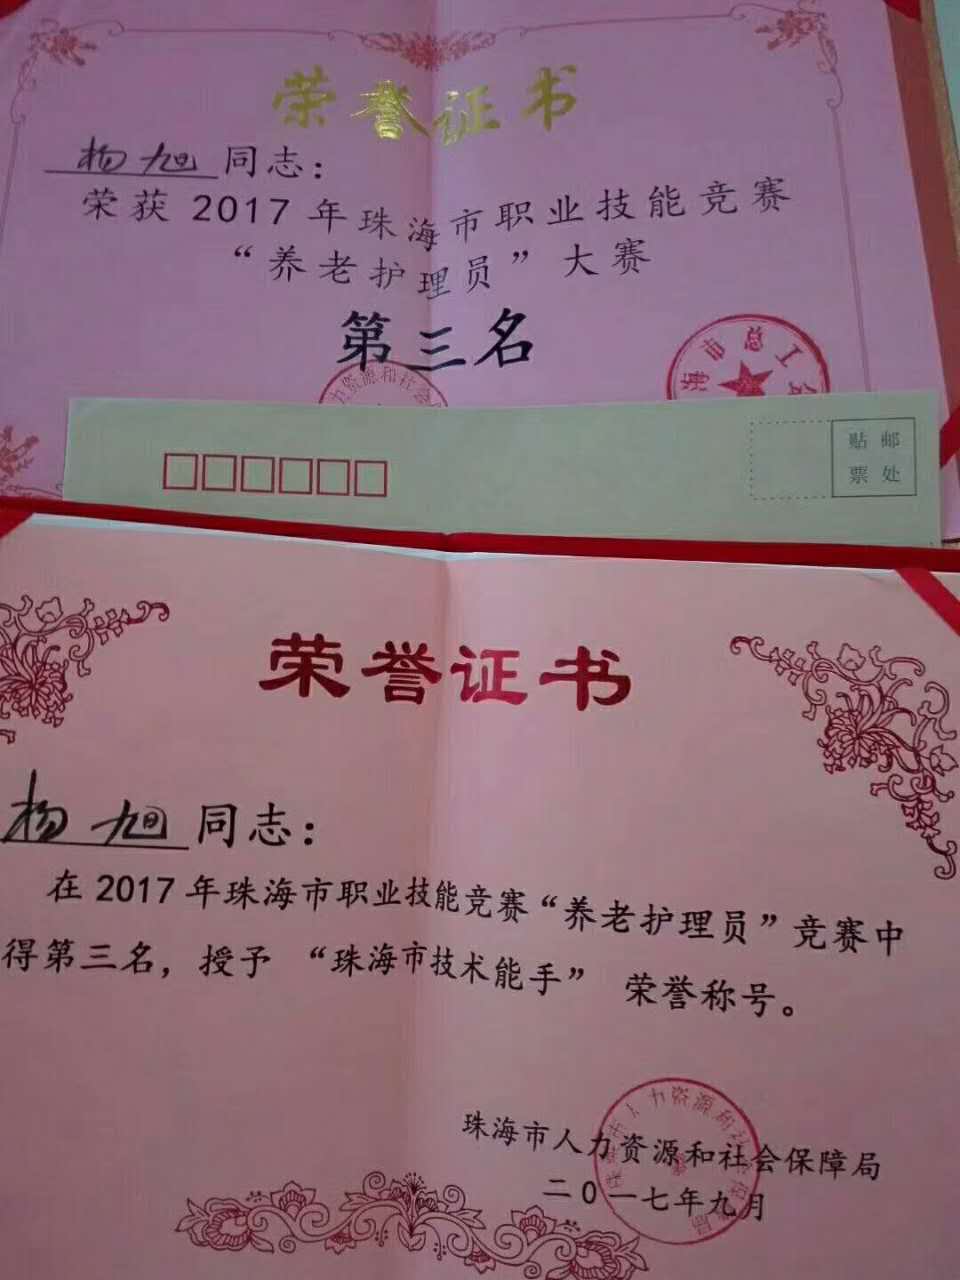 荣誉证书
杨旭 同志：
荣获 2017 年珠海市职业技能竞赛
“养老护理员”大赛
第三名
力资源和社会
海市总工会
贴 邮
票 处
荣誉证书
杨旭 同志：
在 2017 年珠海市职业技能竞赛“养老护理员”竞赛中
得第三名，授予 “珠海市技术能手” 荣誉称号。
珠海市人力资源和社会保障局
二0一七年九月